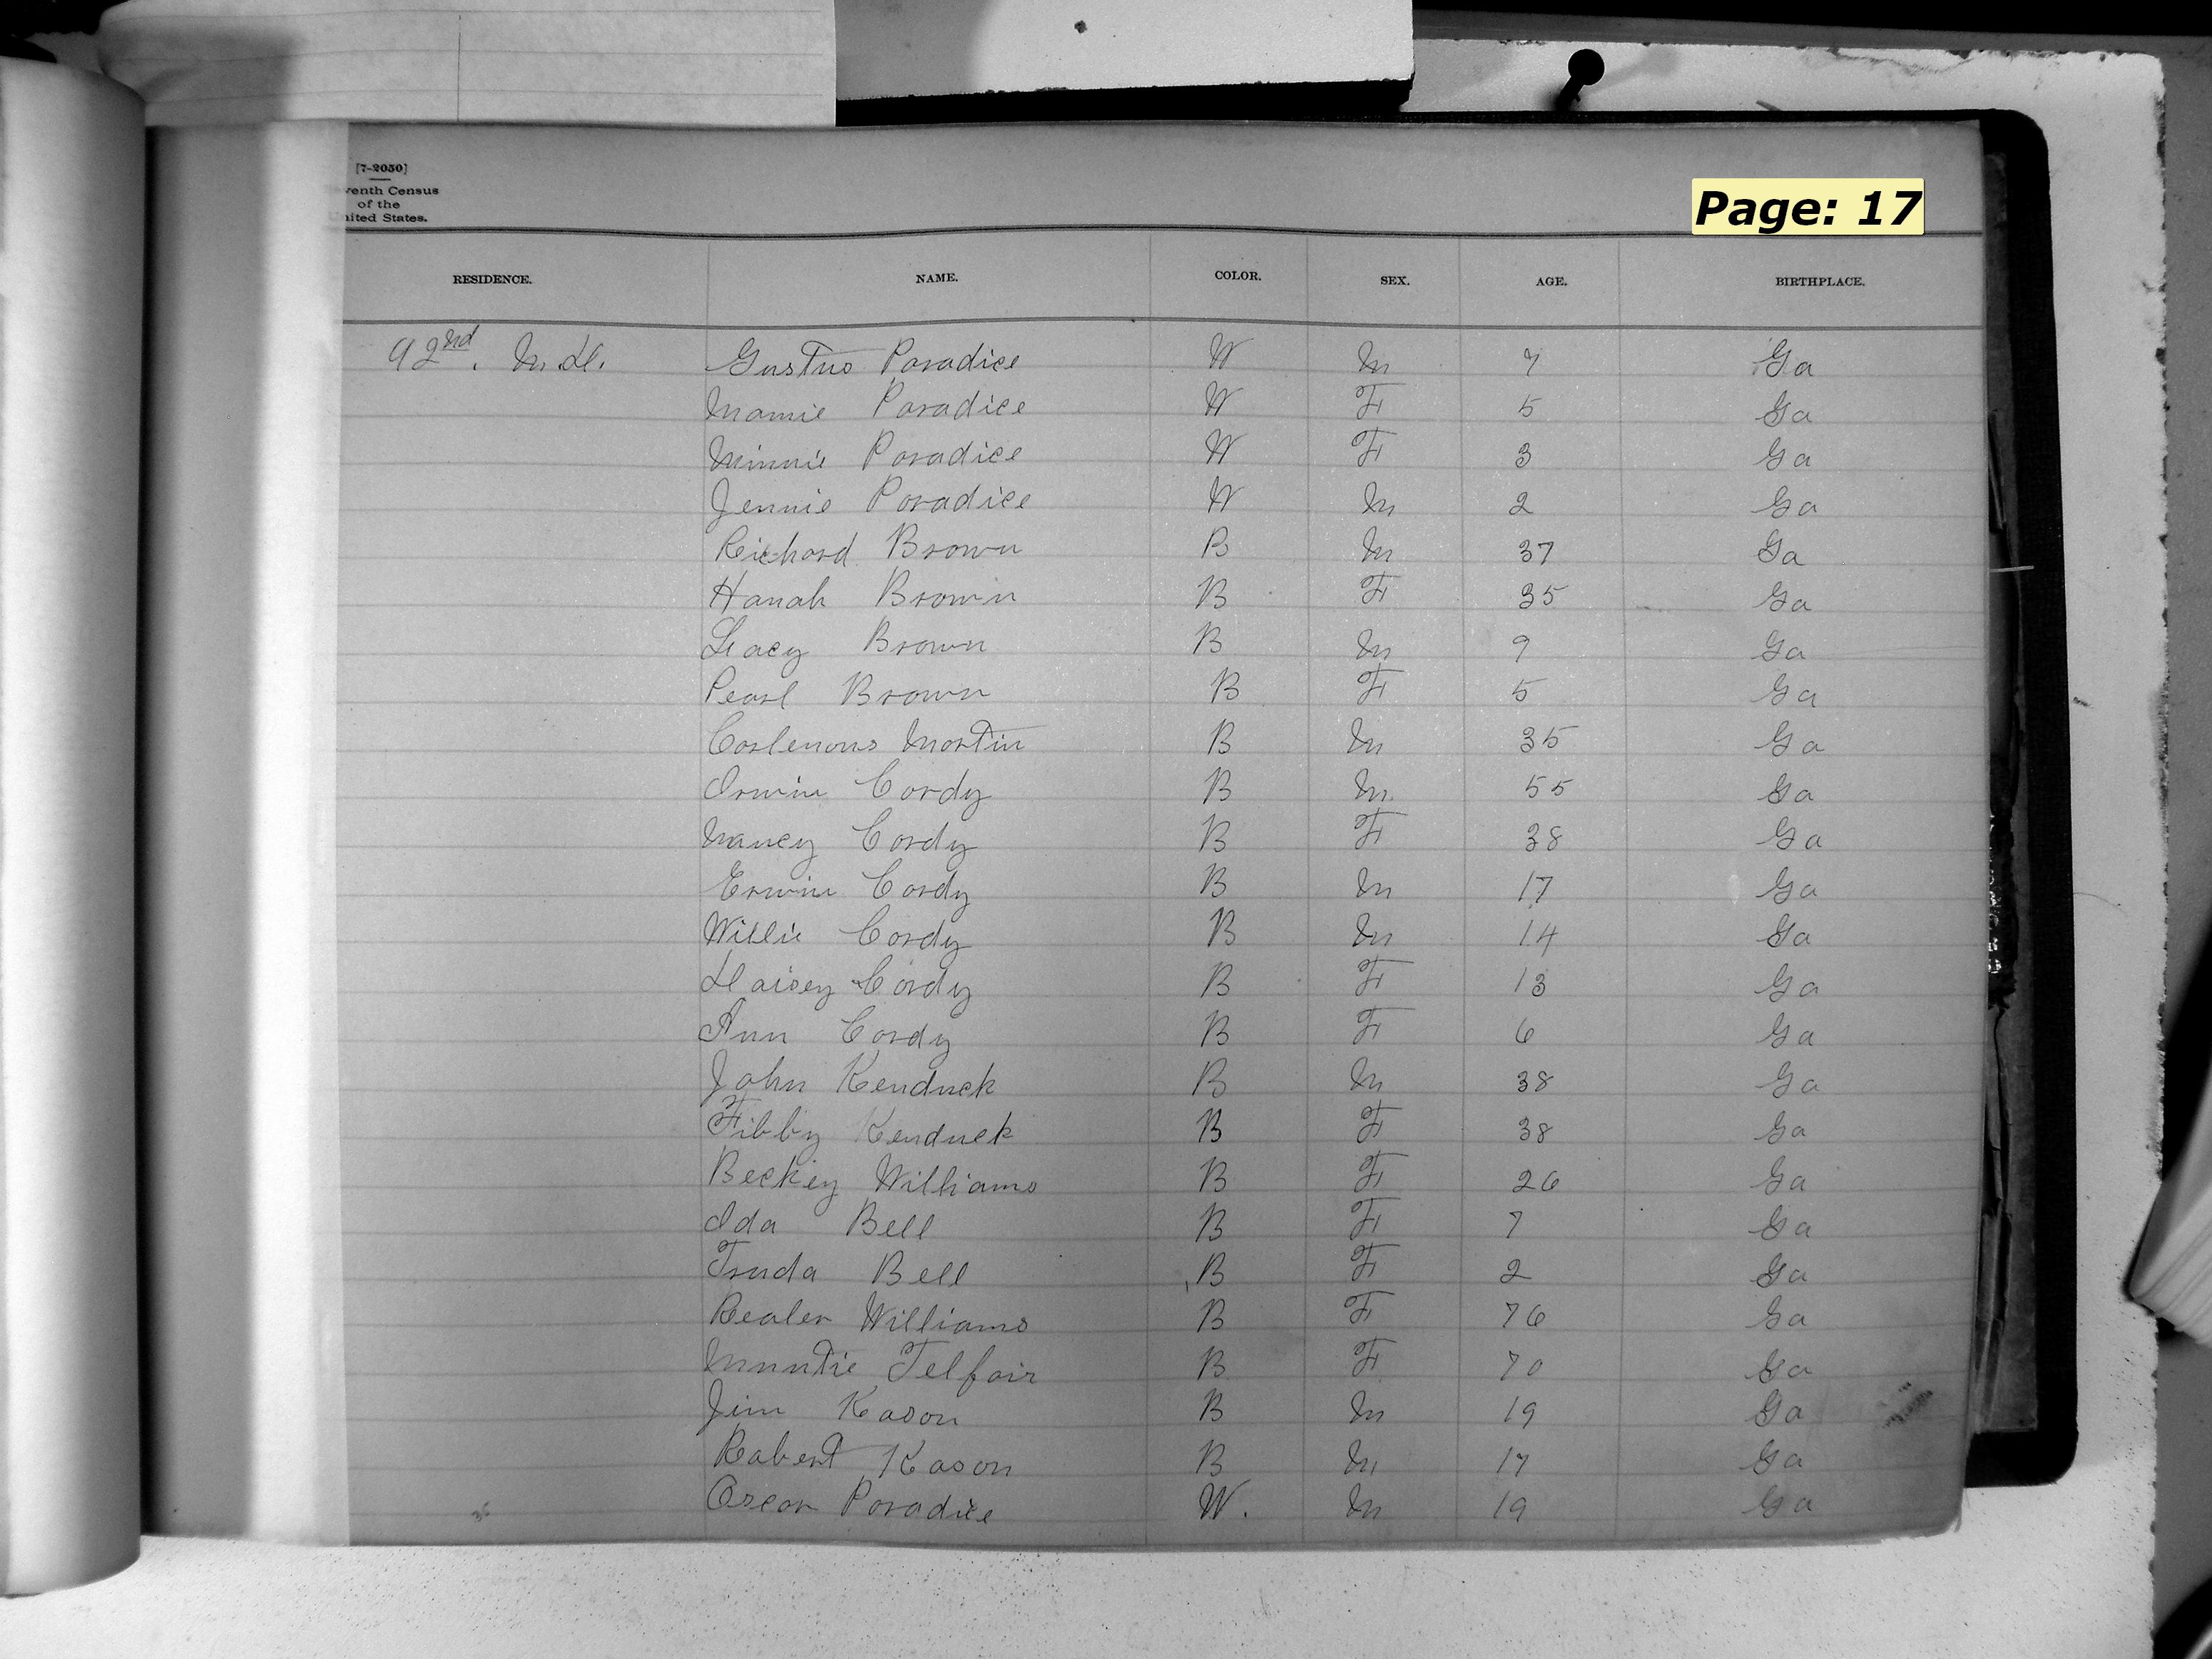 [7-2050]
venth Census
of the
nited States.
Page: 17
RESIDENCE. NAME. COLOR. SEX. AGE. BIRTHPLACE.
92nd. M.D. Gustus Paradice W M 7 Ga
Mamie Paradice W F 5 Ga
Minnie Paradice W F 3 Ga
Jennie Paradice W M 2 Ga
Richard Brown B M 37 Ga
Hanah Brown B F 35 Ga
Lacy Brown B M 9 Ga
Pearl Brown B F 5 Ga
Martin B M 35 Ga
Irwin Cordy B M 55 Ga
Nancy Cordy B F 38 Ga
Erwin Cordy B M 17 Ga
Willie Cordy B M 14 Ga
Daisey Cordy B F 13 Ga
Ann Cordy B F 6 Ga
John Kendrick B M 38 Ga
Fibby Kendrick B F 38 Ga
Beckey Williams B F 26 Ga
Ida Bell B F 7 Ga
Truda Bell B F 2 Ga
Realer Williams B F 76 Ga
Telfair B F 70 Ga
Jim Kason B M 19 Ga
Robert Kason B M 17 Ga
Oscar Paradice W. M 19 Ga